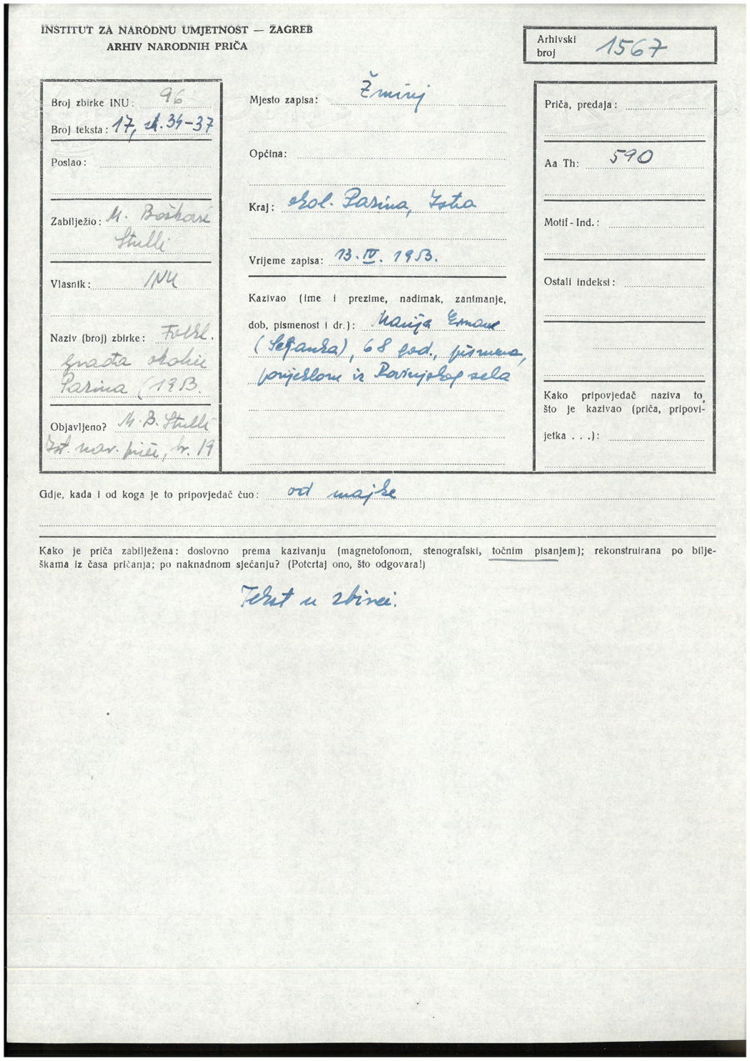 INSTITUT ZA NARODNU UMJETNOST — ZAGREB
ARHIV NARODNIH PRIČA
Arhivski
broj 1567
Broj zbirke INU: 96
Broj teksta: 17, str. 34-37
Poslao:
Zabilježio: M. Bošković
Stulli
Vlasnik: INU
Naziv (broj) zbirke: Folkl.
građa okolice
Pazina (1953.
Objavljeno? M. B. Stulli
Ist. nar. priče, br. 19
Mjesto zapisa: Žminj
Općina:
Kraj: okol. Pazina, Istra
Vrijeme zapisa: 13. IV. 1953.
Kazivao (ime i prezime, nadimak, zanimanje,
dob, pismenost i dr.): Marija
(Seljanka), 68 god., pismena,
porijeklom iz Rovinjskog sela
Priča, predaja:
Aa Th: 590
Motif-Ind.:
Ostali indeksi:
Kako pripovjedač naziva to
što je kazivao (priča, pripovi-
jetka . . .):
Gdje, kada i od koga je to pripovjedač čuo: od majke
Kako je priča zabilježena: doslovno prema kazivanju (magnetofonom, stenografski, točnim pisanjem); rekonstruirana po bilje-
škama iz časa pričanja; po naknadnom sjećanju? (Potcrtaj ono, što odgovara!)
Tekst u zbirci.